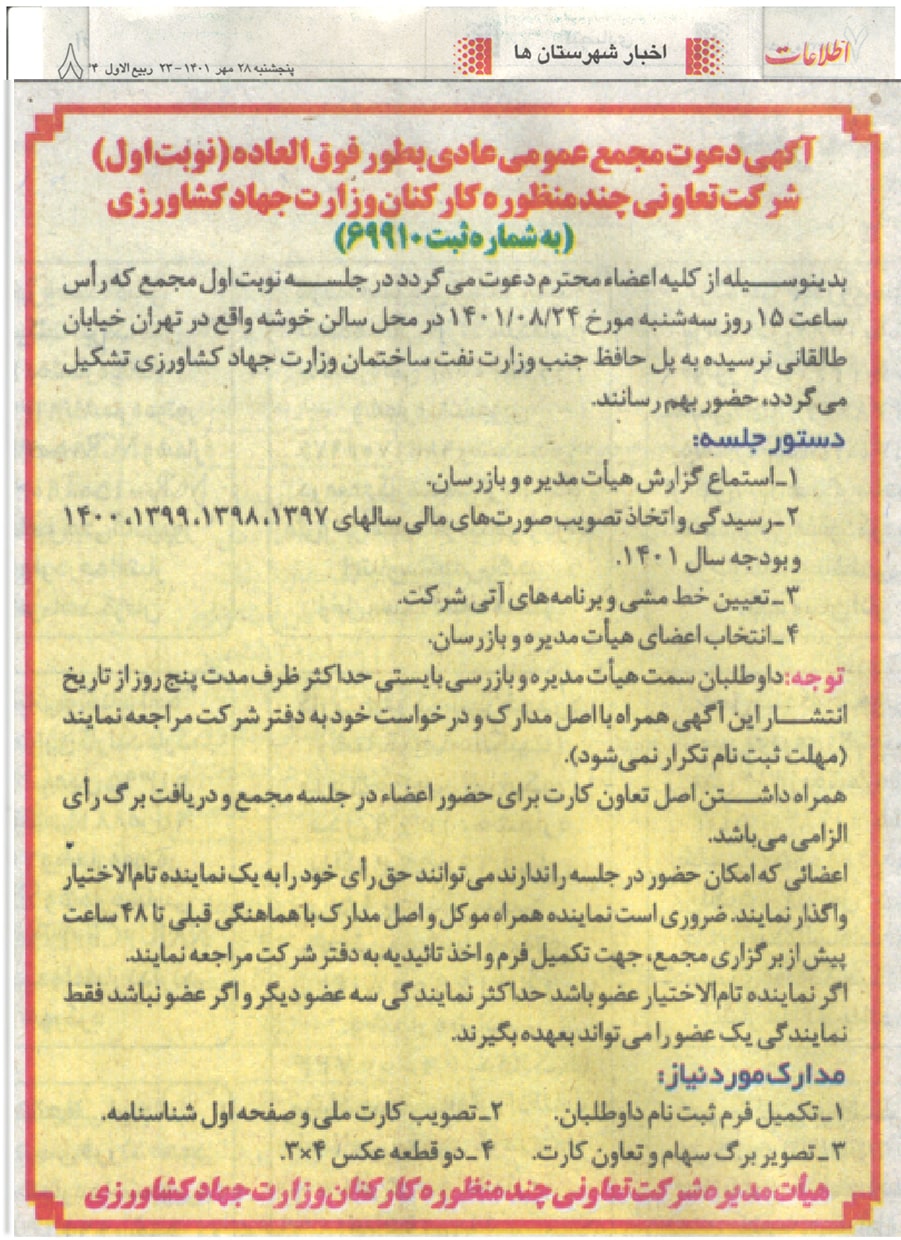 اطلاعات
اخبار شهرستان ها
پنجشنبه ۲۸ مهر ۱۴۰۱-۲۳ ربیع الاول ۴
۸
آگهی دعوت مجمع عمومی عادی بطور فوق العاده (نوبت اول)
شرکت تعاونی چند منظوره کارکنان وزارت جهاد کشاورزی
(به شماره ثبت ۶۹۹۱۰)
بدینوسیله از کلیه اعضاء محترم دعوت می گردد در جلسه نوبت اول مجمع که رأس
ساعت ۱۵ روز سه‌شنبه مورخ ۱۴۰۱/۰۸/۲۴ در محل سالن خوشه واقع در تهران خیابان
طالقانی نرسیده به پل حافظ جنب وزارت نفت ساختمان وزارت جهاد کشاورزی تشکیل
می گردد، حضور بهم رسانند.
دستور جلسه:
۱ـ استماع گزارش هیأت مدیره و بازرسان.
۲ـ رسیدگی و اتخاذ تصویب صورت‌های مالی سالهای ۱۳۹۷، ۱۳۹۸، ۱۳۹۹، ۱۴۰۰
و بودجه سال ۱۴۰۱.
۳ـ تعیین خط مشی و برنامه‌های آتی شرکت.
۴ـ انتخاب اعضای هیأت مدیره و بازرسان.
توجه: داوطلبان سمت هیأت مدیره و بازرسی بایستی حداکثر ظرف مدت پنج روز از تاریخ
انتشار این آگهی همراه با اصل مدارک و درخواست خود به دفتر شرکت مراجعه نمایند
(مهلت ثبت نام تکرار نمی‌شود).
همراه داشتن اصل تعاون کارت برای حضور اعضاء در جلسه مجمع و دریافت برگ رأی
الزامی می‌باشد.
اعضائی که امکان حضور در جلسه را ندارند می‌توانند حق رأی خود را به یک نماینده تام‌الاختیار
واگذار نمایند. ضروری است نماینده همراه موکل و اصل مدارک با هماهنگی قبلی تا ۴۸ ساعت
پیش از برگزاری مجمع، جهت تکمیل فرم و اخذ تائیدیه به دفتر شرکت مراجعه نمایند.
اگر نماینده تام‌الاختیار عضو باشد حداکثر نمایندگی سه عضو دیگر و اگر عضو نباشد فقط
نمایندگی یک عضو را می تواند بعهده بگیرند.
مدارک مورد نیاز:
۱ـ تکمیل فرم ثبت نام داوطلبان. ۲ـ تصویب کارت ملی و صفحه اول شناسنامه.
۳ـ تصویر برگ سهام و تعاون کارت. ۴ـ دو قطعه عکس ۴×۳.
هیأت مدیره شرکت تعاونی چند منظوره کارکنان وزارت جهاد کشاورزی